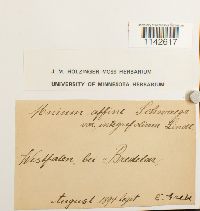 1142617
J. M. HOLZINGER MOSS HERBARIUM
UNIVERSITY OF MINNESOTA HERBARIUM
Mnium affine Schwaegr
var. integrifolium Lindb.
Westfalen, bei Bredelar
August 1891 legt